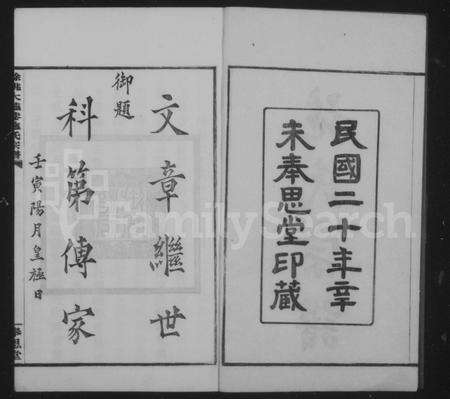 民國二十年辛
未奉思堂印藏
御題
文章繼世
科第傳家
壬寅陽月皇極日
FamilySearch